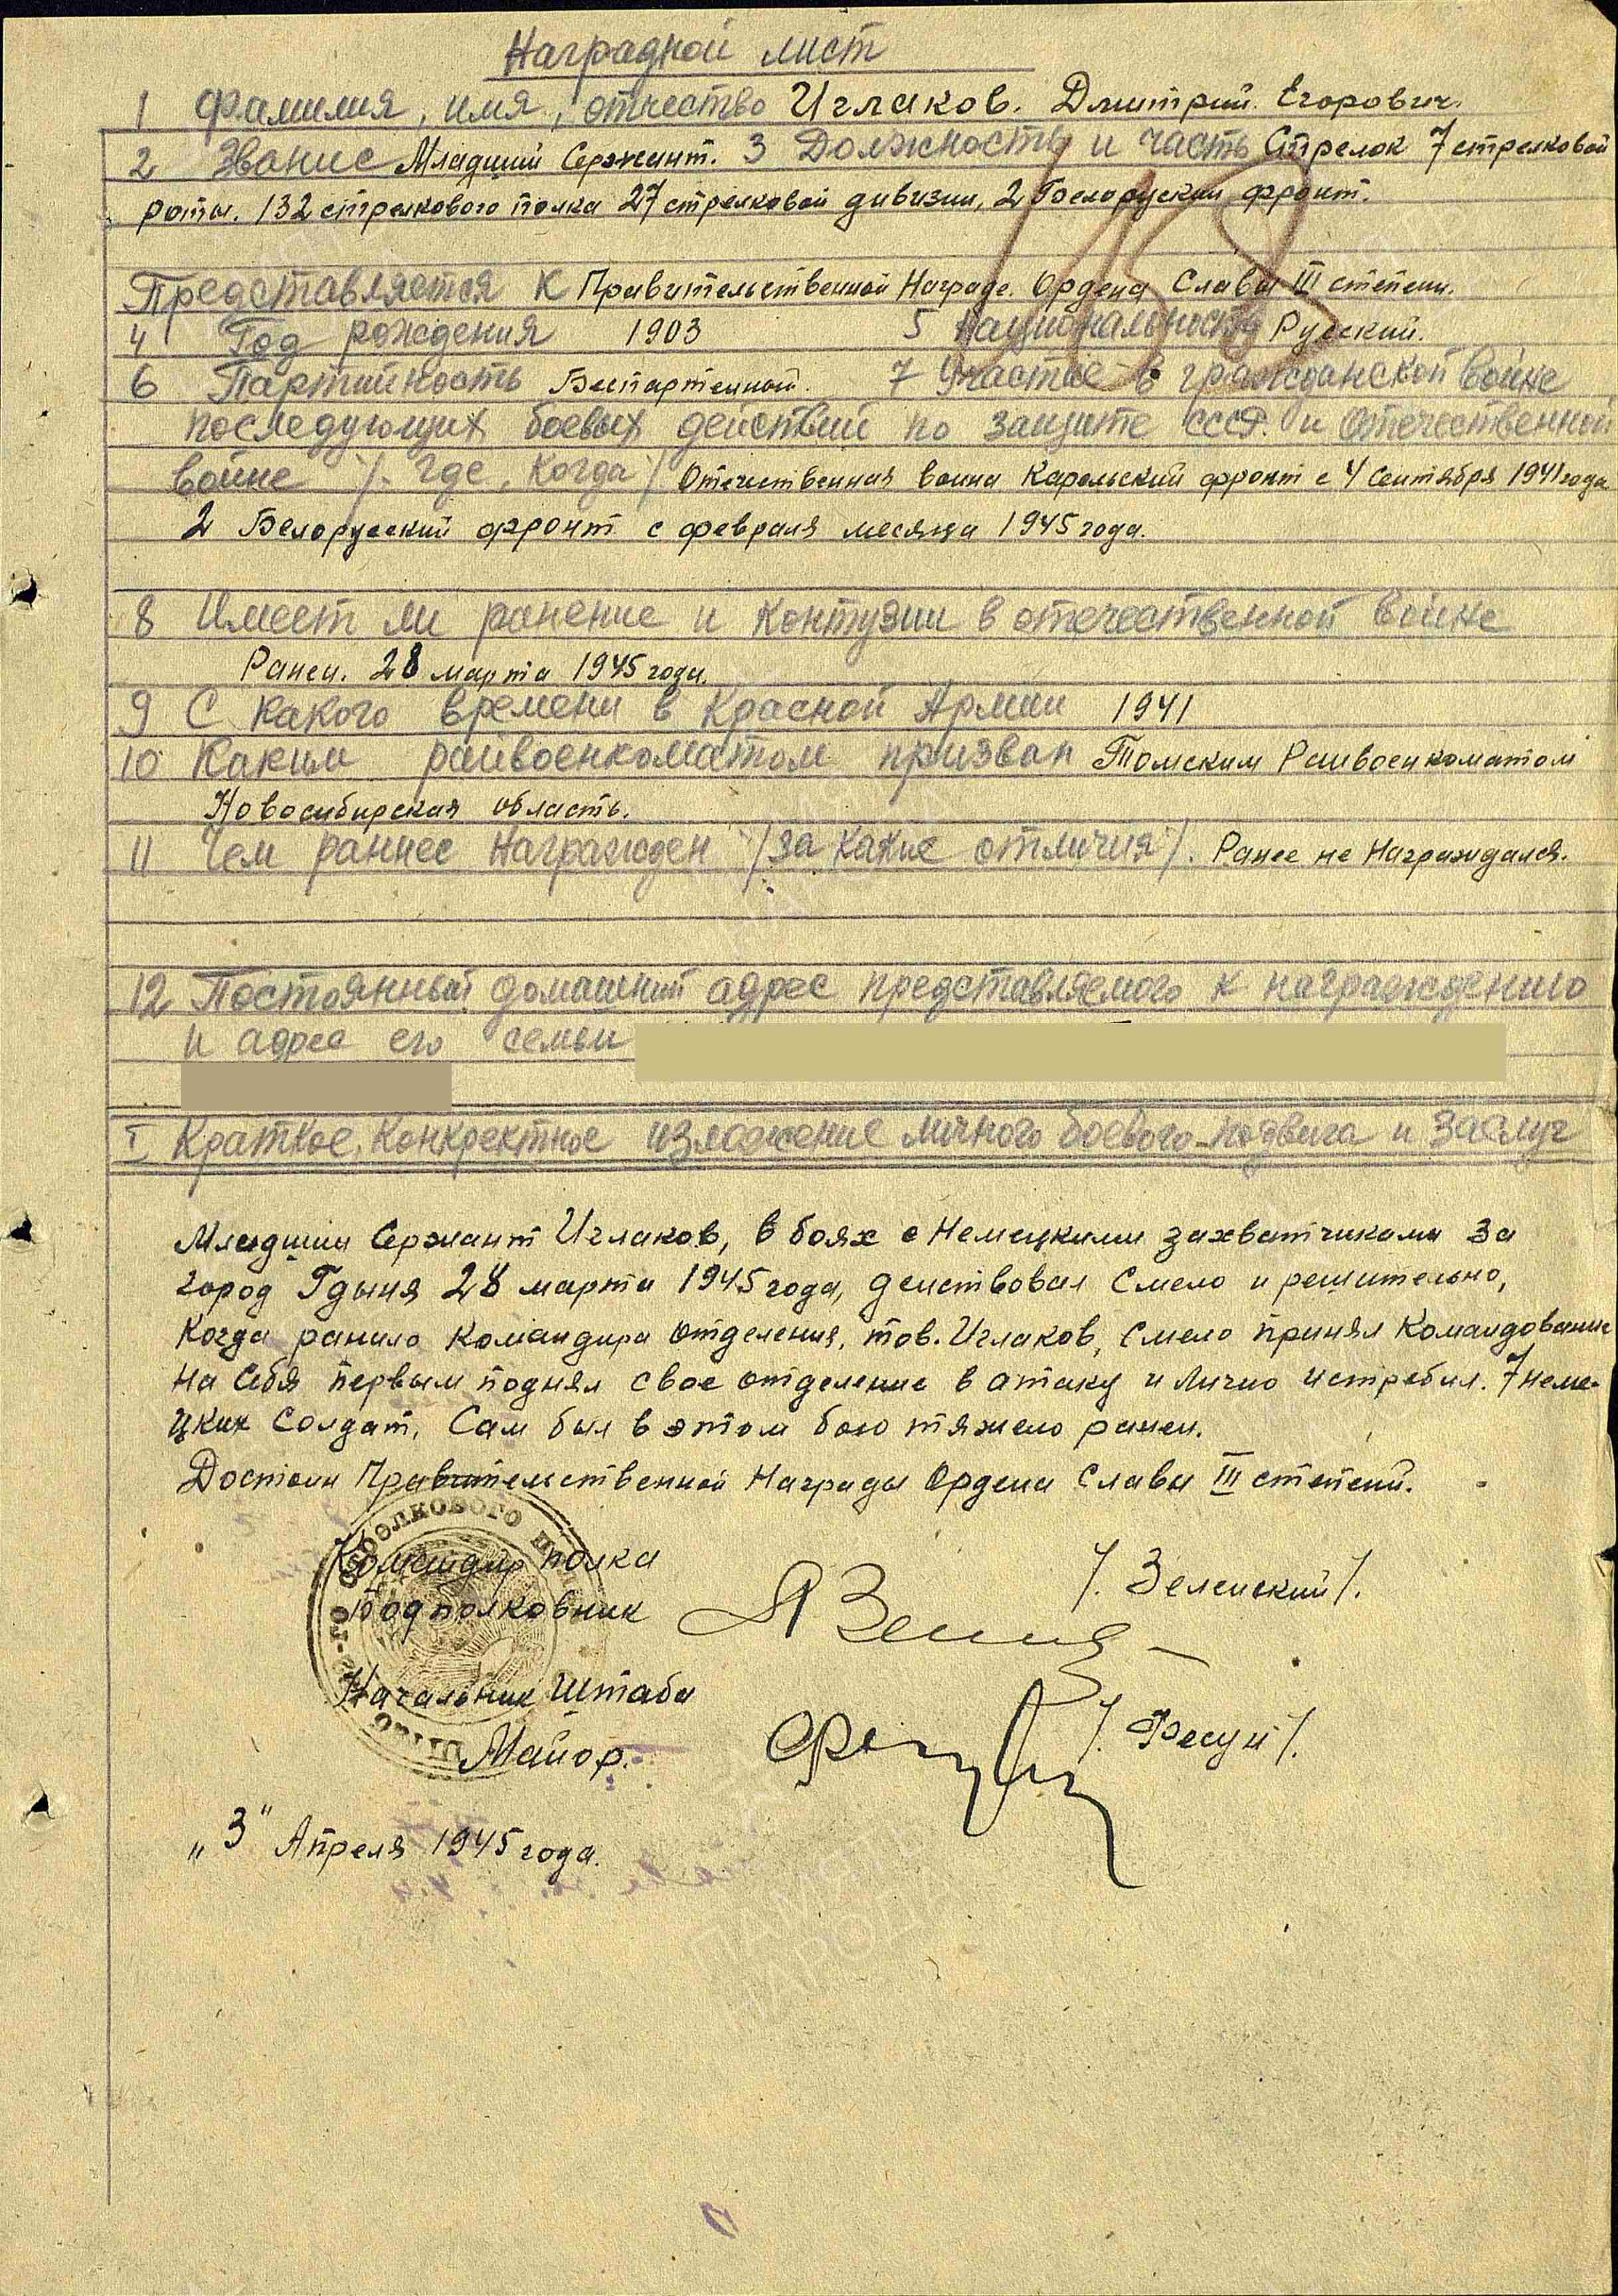 Наградной лист
1 Фамилия, имя, отчество Иглаков. Дмитрий. Егорович.
2 Звание Младший Сержант. 3 Должность и часть Стрелок 7 стрелковой
роты. 132 стрелкового полка 27 стрелковой дивизии, 2 Белоруский фронт.
158
Представляется к Правительственной Награде. Ордена Славы III степени.
4 Год рождения 1903 5 Национальность Русский.
6 Партийность Беспартейный. 7 Участие в гражданской войне
последующих боевых действий по защите СССР. и отечественной
войне /. где, когда / Отечественная война Карельский фронт с 4 Сентября 1941 года
2 Белорусский фронт с февраля месяца 1945 года.
8 Имеет ли ранение и контузии в отечественной войне
Ранен. 28 марта 1945 года.
9 С какого времени в Красной Армии 1941
10 Каким райвоенкоматом призван Томским Райвоенкоматом
Новосибирская область.
11 Чем раннее награжден /за какие отличия/. Ранее не Награждался.
12 Постоянный домашний адрес представляемого к награждению
и адрес его семьи
I Краткое, конкректное изложение личного боевого подвига и заслуг
Младший Сержант Иглаков, в боях с Немецкими захватчиками за
город Гдыня 28 марта 1945 года, действовал Смело и решительно,
когда ранило командира отделения, тов. Иглаков, смело принял командование
на себя первым поднял свое отделение в атаку и лично истребил. 7 неме-
цких солдат. Сам был в этом бою тяжело ранен.
Достоин Правительственной Награды Ордена Славы III степени.
Командир полка
Подполковник /. Зеленский/.
Начальник Штаба
Майор. /. Фесун/.
„3" Апреля 1945 года.
ПАМЯТЬ
НАРОДА